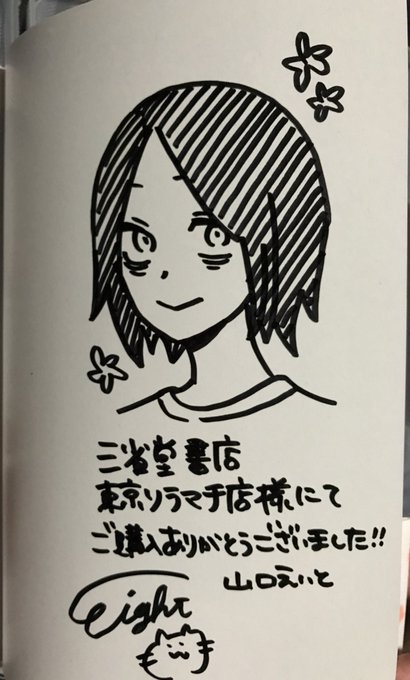 三省堂書店
東京ソラマチ店様にて
ご購入ありがとうございました!!
山口えいと
Eight